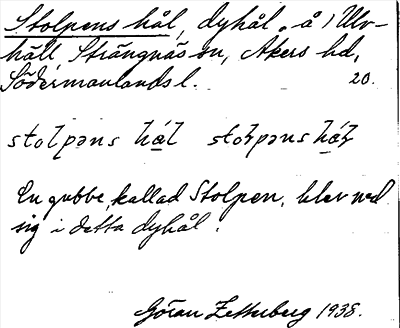 Stolpens hål, dyhål. å 1 Ulv-
häll, Strängnäs sn, Åkers hd,
Södermanlands l. 20.
stolpəns hál stoɫpəns háɫ
En gubbe, kallad Stolpen, blev med
sig i detta dyhål.
Göran Zetterberg 1938.